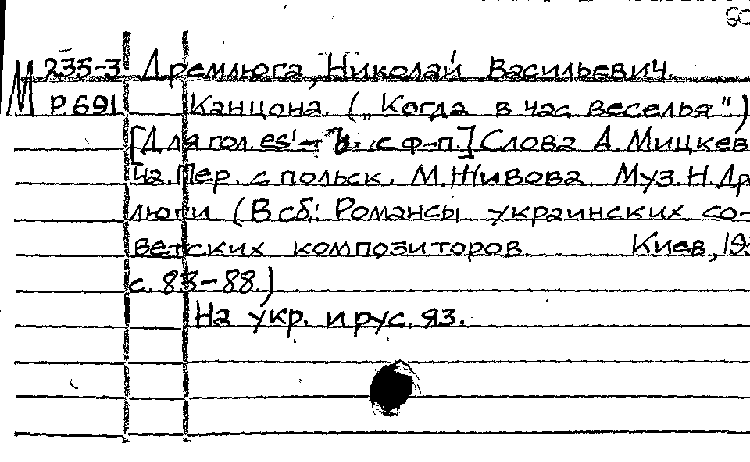 М 235-3 Дремлюга, Николай Васильевич.
Р.691 Канцона. („Когда в час веселья")
[Для гол. es'- с ф-п.] Слова А. Мицкев
ча. Пер. с польск. М. Живова. Муз. Н. Др
люги (В сб.: Романсы украинских со-
ветских композиторов. Киев, 19
с. 83-88.)
На укр. и рус. яз.